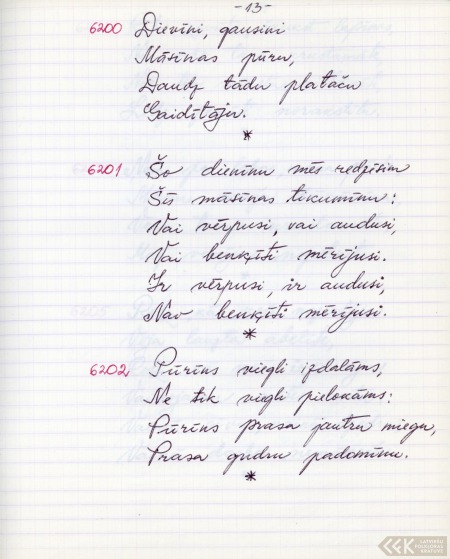 -13-
6200 Dieviņi, gausini
Māsiņas pūru,
Daudz tādu plataču
Gaidītāju.
*
6201 Šo dieniņu mēs redzēsim
Šīs māsiņas tikumiņu:
Vai vērpusi, vai audusi,
Vai benķīti mērījusi.
Ir vērpusi, ir audusi,
Nav benķīti mērījusi.
*
6202 Pūriņs viegli izdalāms,
Ne tik viegli pielokāms:
Pūriņs prasa jautru miegu,
Prasa gudru padomiņu.
*
LATVIEŠU
FOLKLORAS
KRĀTUVE